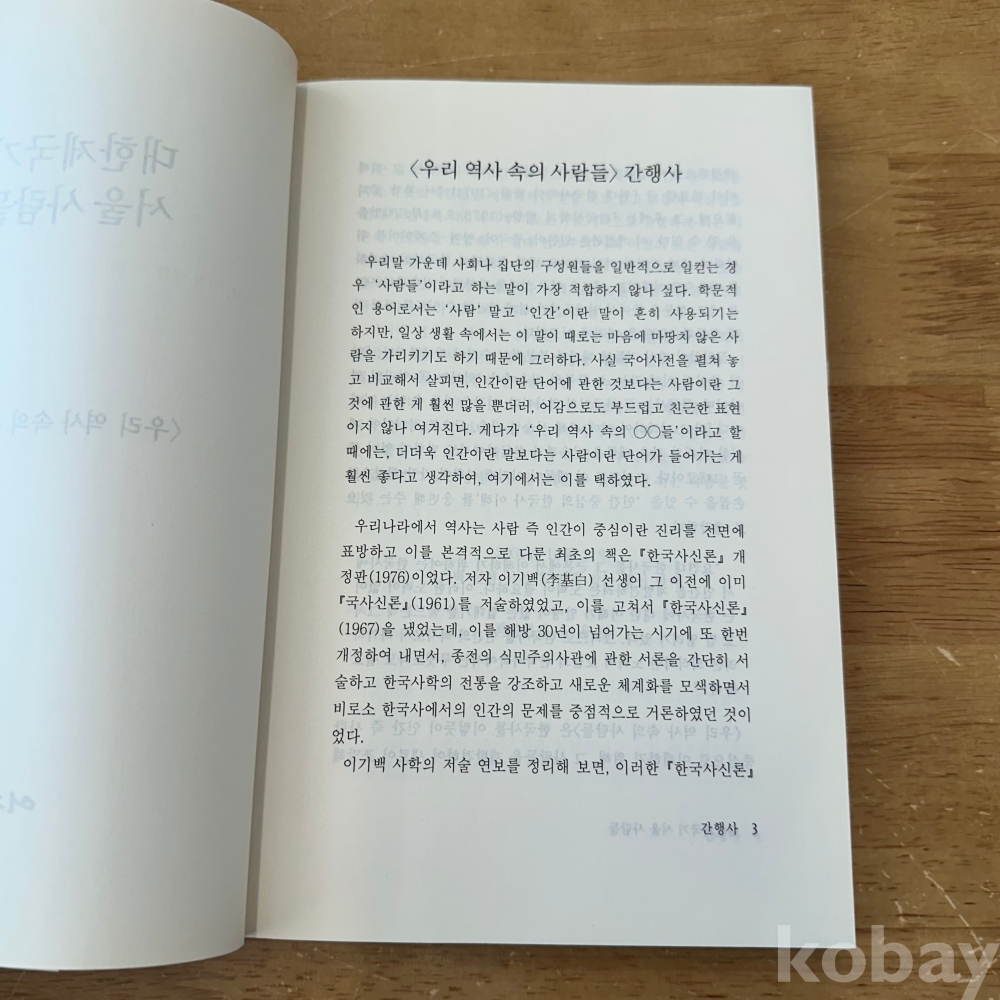 〈우리 역사 속의 사람들〉 간행사
우리말 가운데 사회나 집단의 구성원들을 일반적으로 일컫는 경
우 ‘사람들’이라고 하는 말이 가장 적합하지 않나 싶다. 학문적
인 용어로서는 ‘사람’ 말고 ‘인간’이란 말이 흔히 사용되기는
하지만, 일상 생활 속에서는 이 말이 때로는 마음에 마땅치 않은 사
람을 가리키기도 하기 때문에 그러하다. 사실 국어사전을 펼쳐 놓
고 비교해서 살피면, 인간이란 단어에 관한 것보다는 사람이란 그
것에 관한 게 훨씬 많을 뿐더러, 어감으로도 부드럽고 친근한 표현
이지 않나 여겨진다. 게다가 ‘우리 역사 속의 ○○들’이라고 할
때에는, 더더욱 인간이란 말보다는 사람이란 단어가 들어가는 게
훨씬 좋다고 생각하여, 여기에서는 이를 택하였다.
우리나라에서 역사는 사람 즉 인간이 중심이란 진리를 전면에
표방하고 이를 본격적으로 다룬 최초의 책은 『한국사신론』 개
정판(1976)이었다. 저자 이기백(李基白) 선생이 그 이전에 이미
『국사신론』(1961)를 저술하였었고, 이를 고쳐서 『한국사신론』
(1967)을 냈었는데, 이를 해방 30년이 넘어가는 시기에 또 한번
개정하여 내면서, 종전의 식민주의사관에 관한 서론을 간단히 서
술하고 한국사학의 전통을 강조하고 새로운 체계화를 모색하면서
비로소 한국사에서의 인간의 문제를 중점적으로 거론하였던 것이
었다.
이기백 사학의 저술 연보를 정리해 보면, 이러한 『한국사신론』
간행사 3
kobay